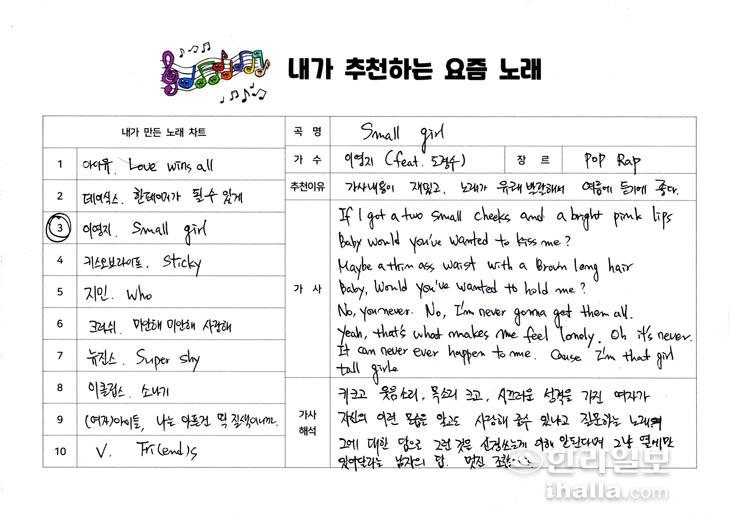 내가 추천하는 요즘 노래
내가 만든 노래 차트
1 아이유. Love wins all
2 데이식스. 한페이지가 될 수 있게
3 이영지. Small girl
4 키스오브라이프. Sticky
5 지민. Who
6 크러쉬. 미안해 미안해 사랑해
7 뉴진스. Super shy
8 이클립스. 소나기
9 (여자)아이들, 나는 아픈건 딱 질색이니까.
10 V. Fri(end)s
곡 명 Small girl
가 수 이영지 (feat. 도경수) 장 르 POP Rap
추천이유 가사내용이 재밌고, 노래가 유쾌 발랄해서 여름에 듣기에 좋다.
가 사
If I got a two small cheeks and a bright pink lips
Baby would you've wanted to kiss me?
Maybe a thin ass waist with a Brown long hair
Baby, Would you've wanted to hold me?
No, you never. No, I'm never gonna get them all.
Yeah, that's what makes me feel lonely. Oh it's never.
It can never ever happen to me. Cause I'm that girl
tall girl
가사 해석
키크고 웃음소리, 목소리 크고, 시끄러운 성격을 가진 여자가
자신의 이런 모습을 알고도 사랑해 줄수 있냐고 질문하는 노래에
그에 대한 답으로 그런 것은 신경쓰는게 이해 안된다며 그냥 옆에만
있어달라는 남자의 답. 멋진 조합
한라일보
ihalla.com